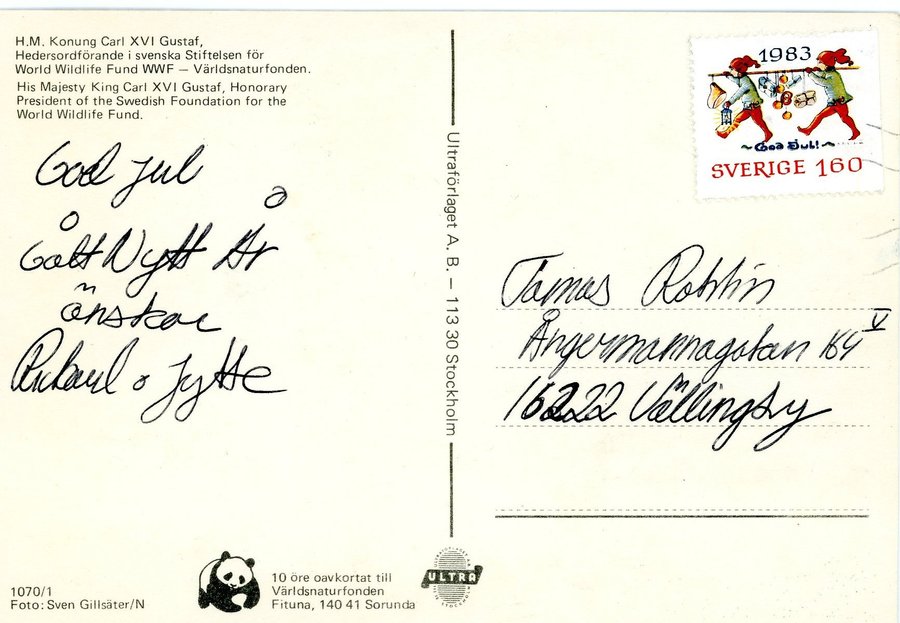 H.M. Konung Carl XVI Gustaf,
Hedersordförande i svenska Stiftelsen för
World Wildlife Fund WWF – Världsnaturfonden.
His Majesty King Carl XVI Gustaf, Honorary
President of the Swedish Foundation for the
World Wildlife Fund.
God jul
Gått Nytt År
önskar
Rickard o Jytte
Ultraförlaget A. B. – 113 30 Stockholm
1983
~God Jul!~
SVERIGE 160
Tomas
Ångermannagatan 164 V
16222 Vällingby
1070/1
Foto: Sven Gillsäter/N
10 öre oavkortat till
Världsnaturfonden
Fituna, 140 41 Sorunda
ULTRA